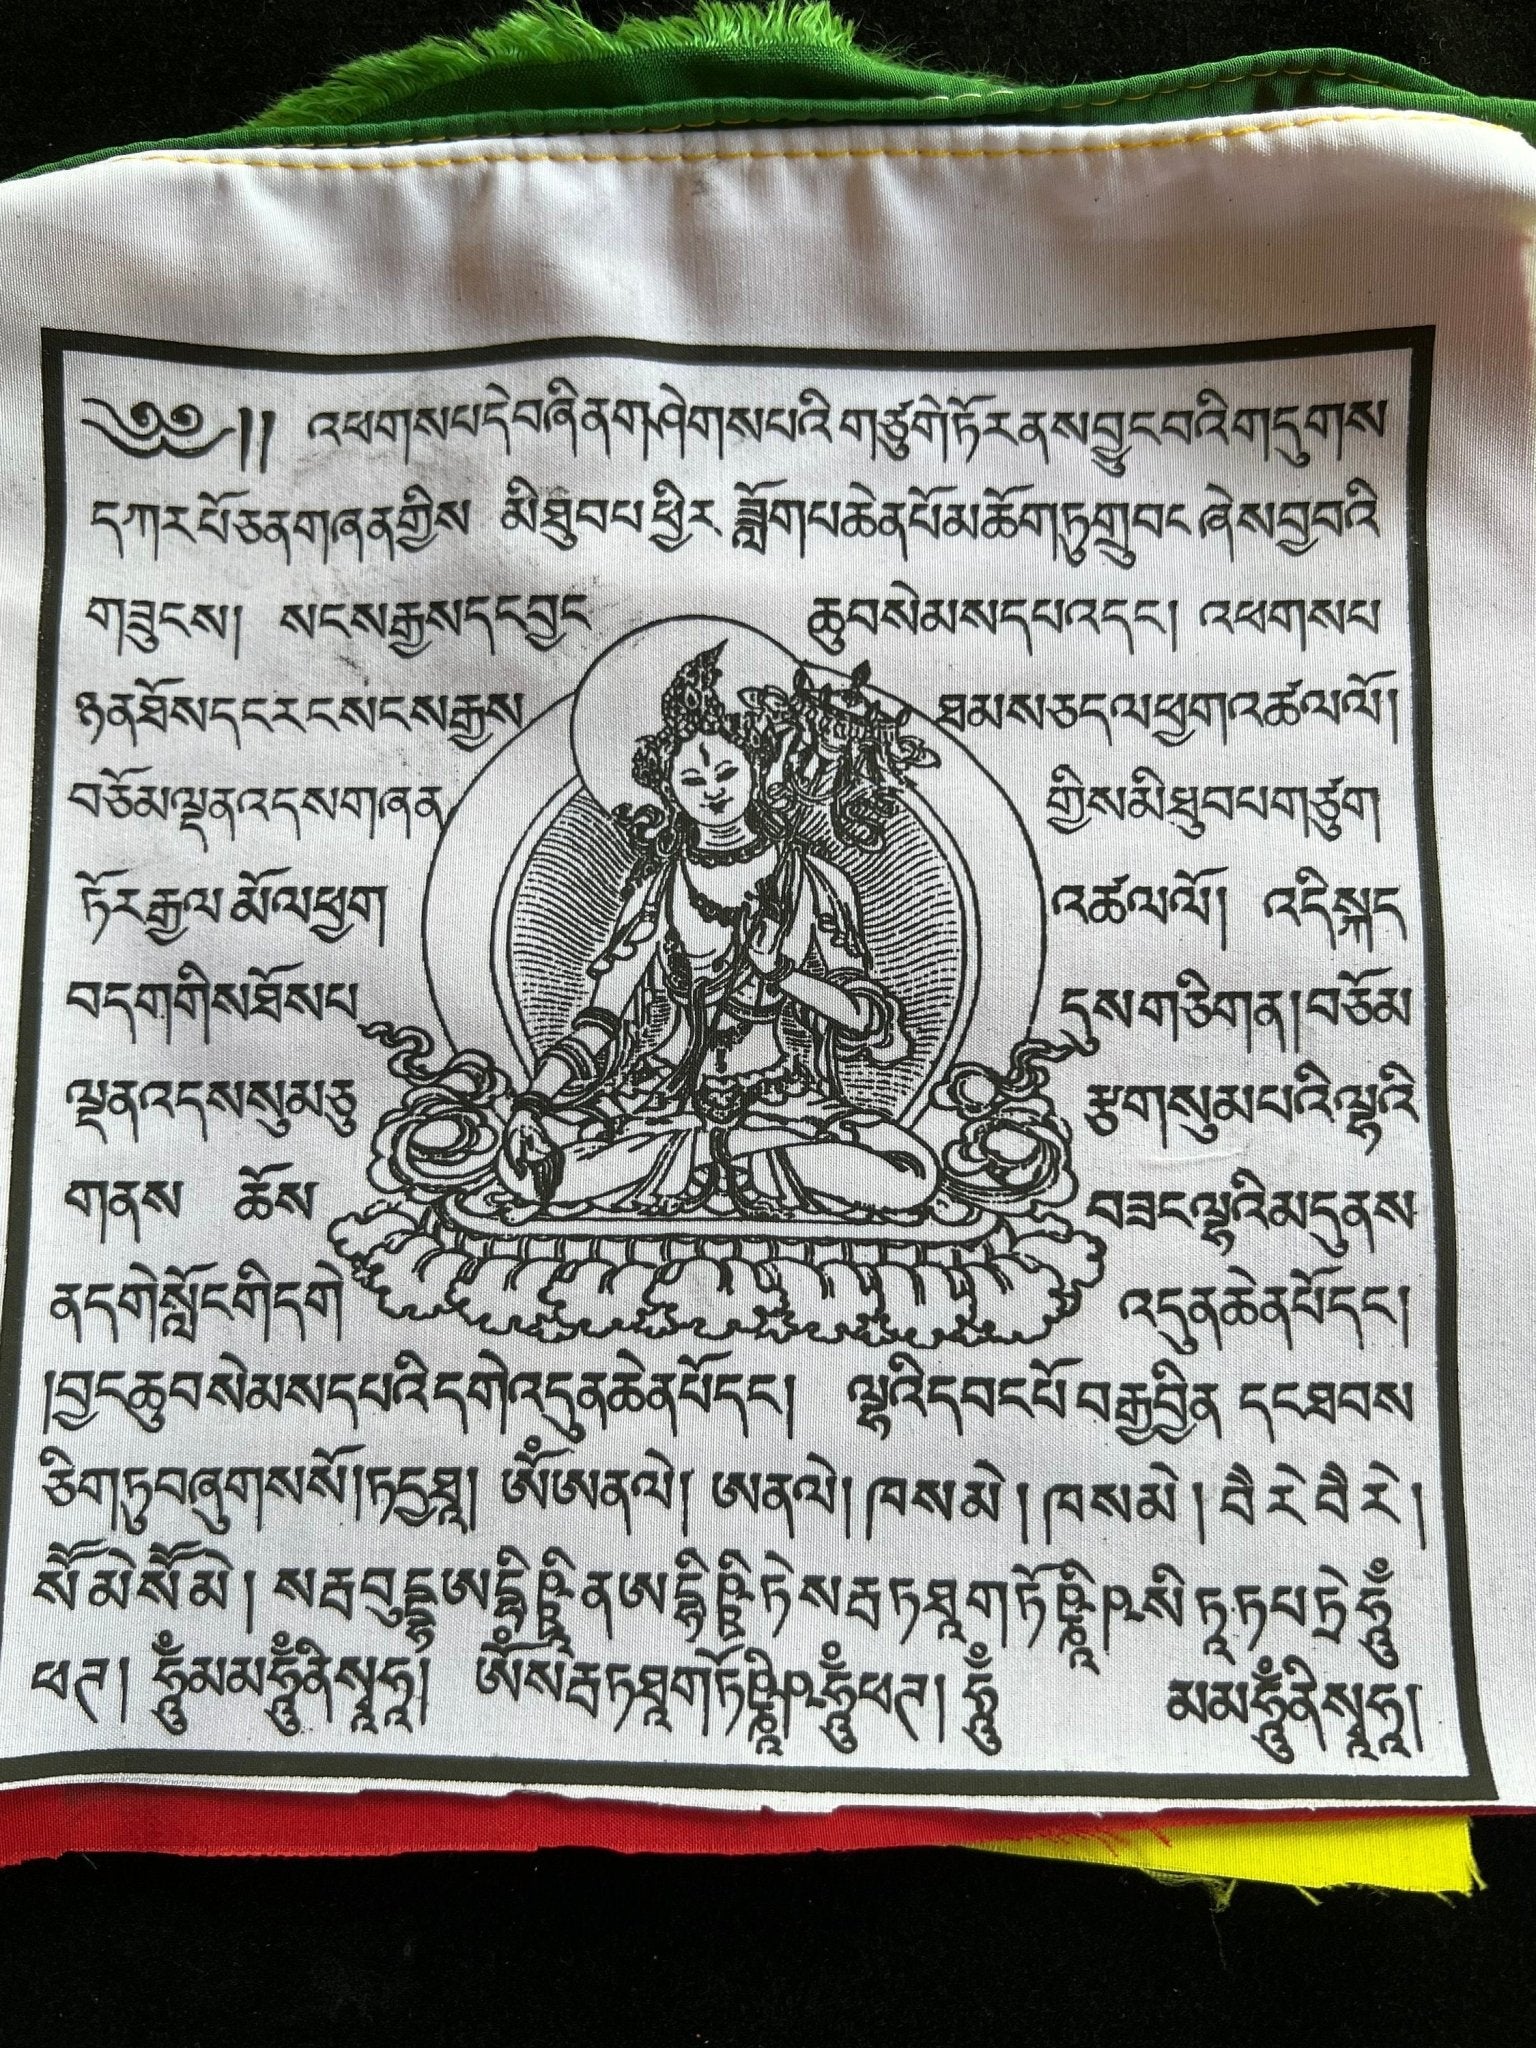 ༄༅།། འཕགས་པ་དེ་བཞིན་གཤེགས་པའི་གཙུག་ཏོར་ནས་བྱུང་བའི་གདུགས་
དཀར་པོ་ཅན་གཞན་གྱིས་ མི་ཐུབ་པ་ཕྱིར་ ཟློག་པ་ཆེན་པོ་མཆོག་ཏུ་གྲུབ་ང་ ཞེས་བྱ་བའི་
གཟུངས། སངས་རྒྱས་དང་བྱང་ ཆུབ་སེམས་དཔའ་དང་། འཕགས་པ་
ཉན་ཐོས་དང་རང་སངས་རྒྱས་ ཐམས་ཅད་ལ་ཕྱག་འཚལ་ལོ།
བཅོམ་ལྡན་འདས་གཞན་ གྱིས་མི་ཐུབ་པ་གཙུག་
ཏོར་རྒྱལ་མོ་ལ་ཕྱག་ འཚལ་ལོ། འདི་སྐད་
བདག་གིས་ཐོས་པ་ དུས་གཅིག་ན། བཅོམ་
ལྡན་འདས་སུམ་ཅུ་ རྩ་གསུམ་པའི་ལྷའི་
གནས་ ཆོས་ བཟང་ལྷའི་མདུན་ས་
ན་དགེ་སློང་གི་དགེ་ འདུན་ཆེན་པོ་དང་།
།བྱང་ཆུབ་སེམས་དཔའི་དགེ་འདུན་ཆེན་པོ་དང་། ལྷའི་དབང་པོ་བརྒྱ་བྱིན་ དང་ཐབས་
ཅིག་ཏུ་བཞུགས་སོ། ཏདྱ་ཐཱ། ཨོཾ་ཨ་ན་ལེ། ཨ་ན་ལེ། ཁ་ས་མེ། ཁ་ས་མེ། བཻ་རེ་བཻ་རེ།
སཽ་མེ་སཽ་མེ། སརྦ་བུདྡྷ་ཨ་དྷིཥྛི་ན་ཨ་དྷིཥྛི་ཏེ་སརྦ་ཏ་ཐཱ་ག་ཏོཥྞཱི་ཥ་སི་ཏཱ་ཏ་པ་ཏྲེ་ཧཱུྃ་
ཕཊ། ཧཱུྃ་མ་མ་ཧཱུྃ་ནི་སྭཱ་ཧཱ། ཨོཾ་སརྦ་ཏ་ཐཱ་ག་ཏོཥྞཱི་ཥ་ཧཱུྃ་ཕཊ། ཧཱུྃ་ མ་མ་ཧཱུྃ་ནི་སྭཱ་ཧཱ།